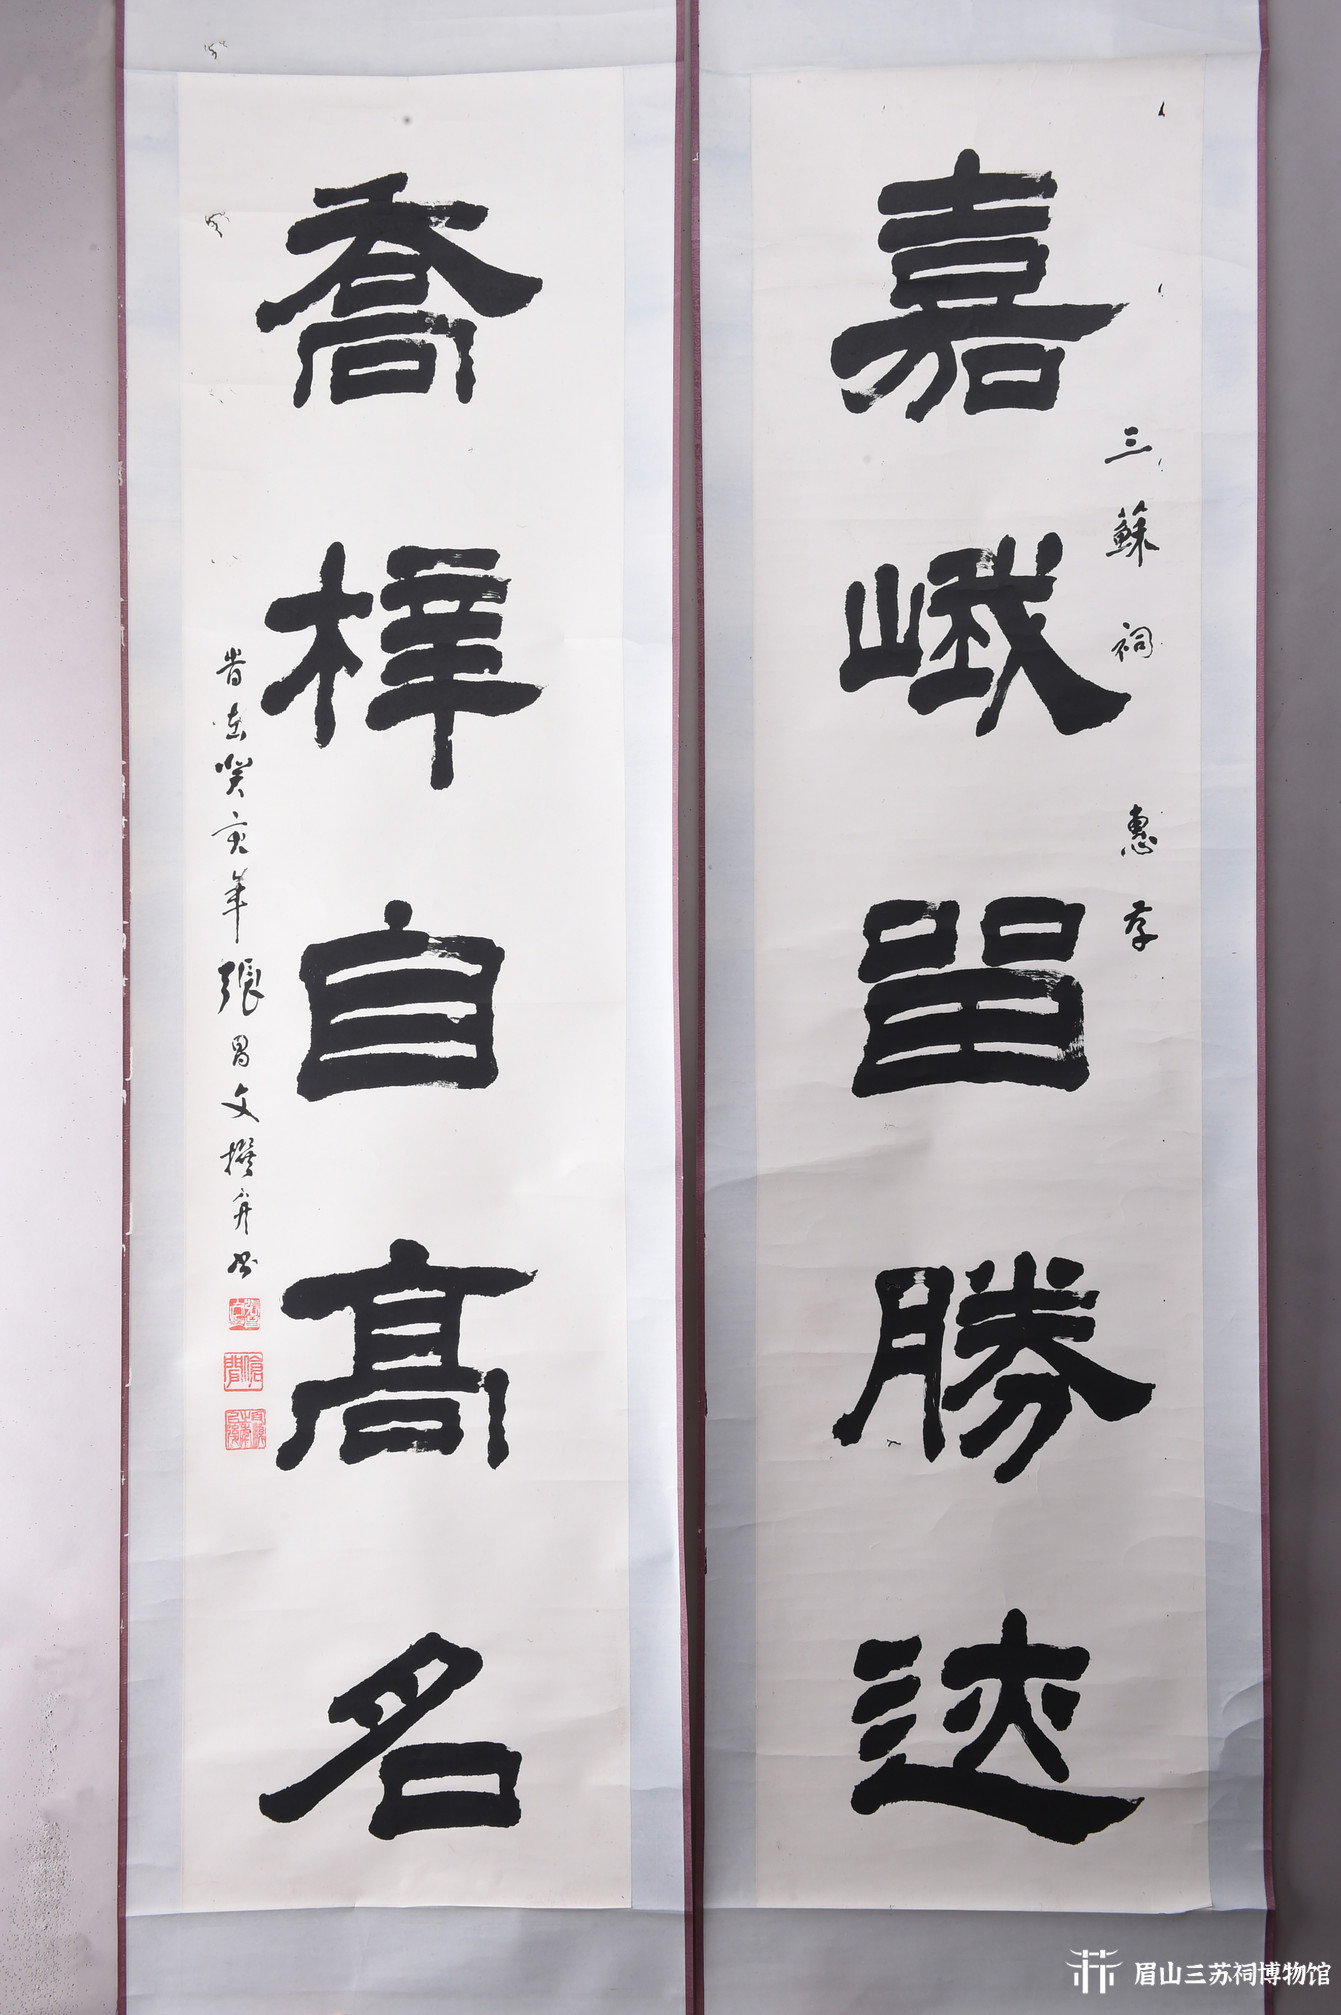 嘉峨留勝迹
三蘇祠 惠存
喬梓自高名
岩在癸亥年張冒文撰并书
眉山三苏祠博物馆